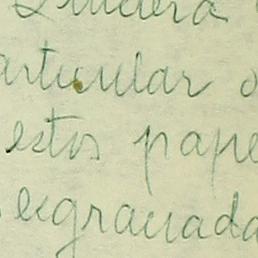 articular
estos pape
esgranada